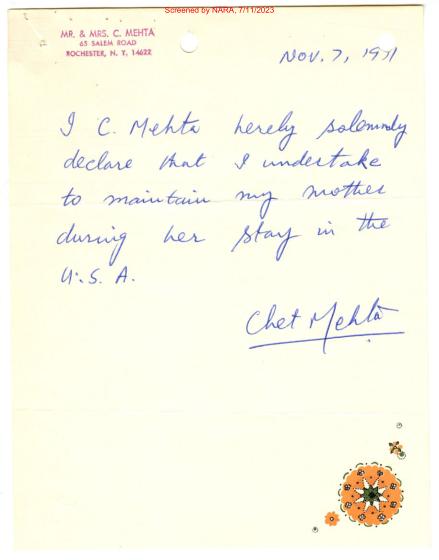 Screened by NARA, 7/11/2023
MR. & MRS. C. MEHTA
65 SALEM ROAD
ROCHESTER, N. Y. 14622
Nov. 7, 1971
I C. Mehta hereby solemnly
declare that I undertake
to maintain my mother
during her stay in the
U.S.A.
Chet Mehta